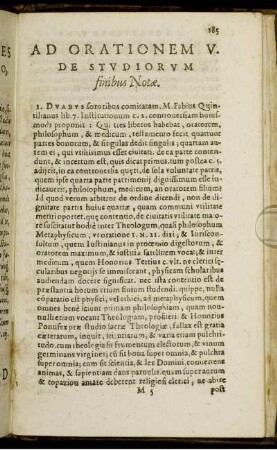 185
AD ORATIONEM V.
DE STVDIORVM
finibus Notæ.
1. DVABVS sororibus comitatam. M. Fabius Quin-
tilianus lib. 7. Institutionum c. 1. controuersiam huius-
modi proponit: Qui tres liberos habebat, oratorem,
philosophum, & medicum, testamento fecit quattuor
partes bonorum, & singulas dedit singulis; quartam au-
tem ei, qui vtilissimus esset ciuitati. de ea parte conten-
dunt, & incertum est, quis dicat primus. tum postea c. 5.
adijcit, in ea controuersia quæri, de sola voluntate patris,
quem ipse quarta parte patrimonij dignissimum esse iu-
dicauerit, philosophum, medicum, an oratorem filium.
Id quod verum arbitror de ordine dicendi, non de di-
gnitate partis huius quartæ, quam communi vtilitate
metiri oportet, quę contentio, de ciuitatis vtilitate maio-
re susciteratur hodie inter Theologum, quasi philosophum
Metaphysicum, vt oratione I. M. 21. dixi, & Iuriscon-
sultum, quem Iustinianus in procemio digestorum, &
oratorem maximum, & iustitię satellitem vocat, & inter
medicum, quem Honorius Tertius c. vlt. ne clerici sę-
cularibus negotijs se immisceant, physicam scholaribus
audiendam docere significat. nec ista contentio est de
præstantia horum trium finium studendi. quippe, nulla
cōparatio est physici, vel ethici, ad metaphysicum, quem
omnes bene sciunt primam philosophiam, quam non-
nulli etiam vocant Theologiam, profiteri. & Honorius
Pontifex præ studio sacræ Theologiæ, fallax est gratia
exterarum, inquit, scientiarum, & varia etiam pulchri-
tudo. cum theologia sit frumentum electorum, & vinum
germinans virgines; cū sit bona super omnia, & pulchra
super omnia; cum sit scientia, & lex Domini conuertens
animas, & sapientiam dans paruulis. quam super aurum
& topazion amare deberent religiosi clerici, ne abire
M 5 post